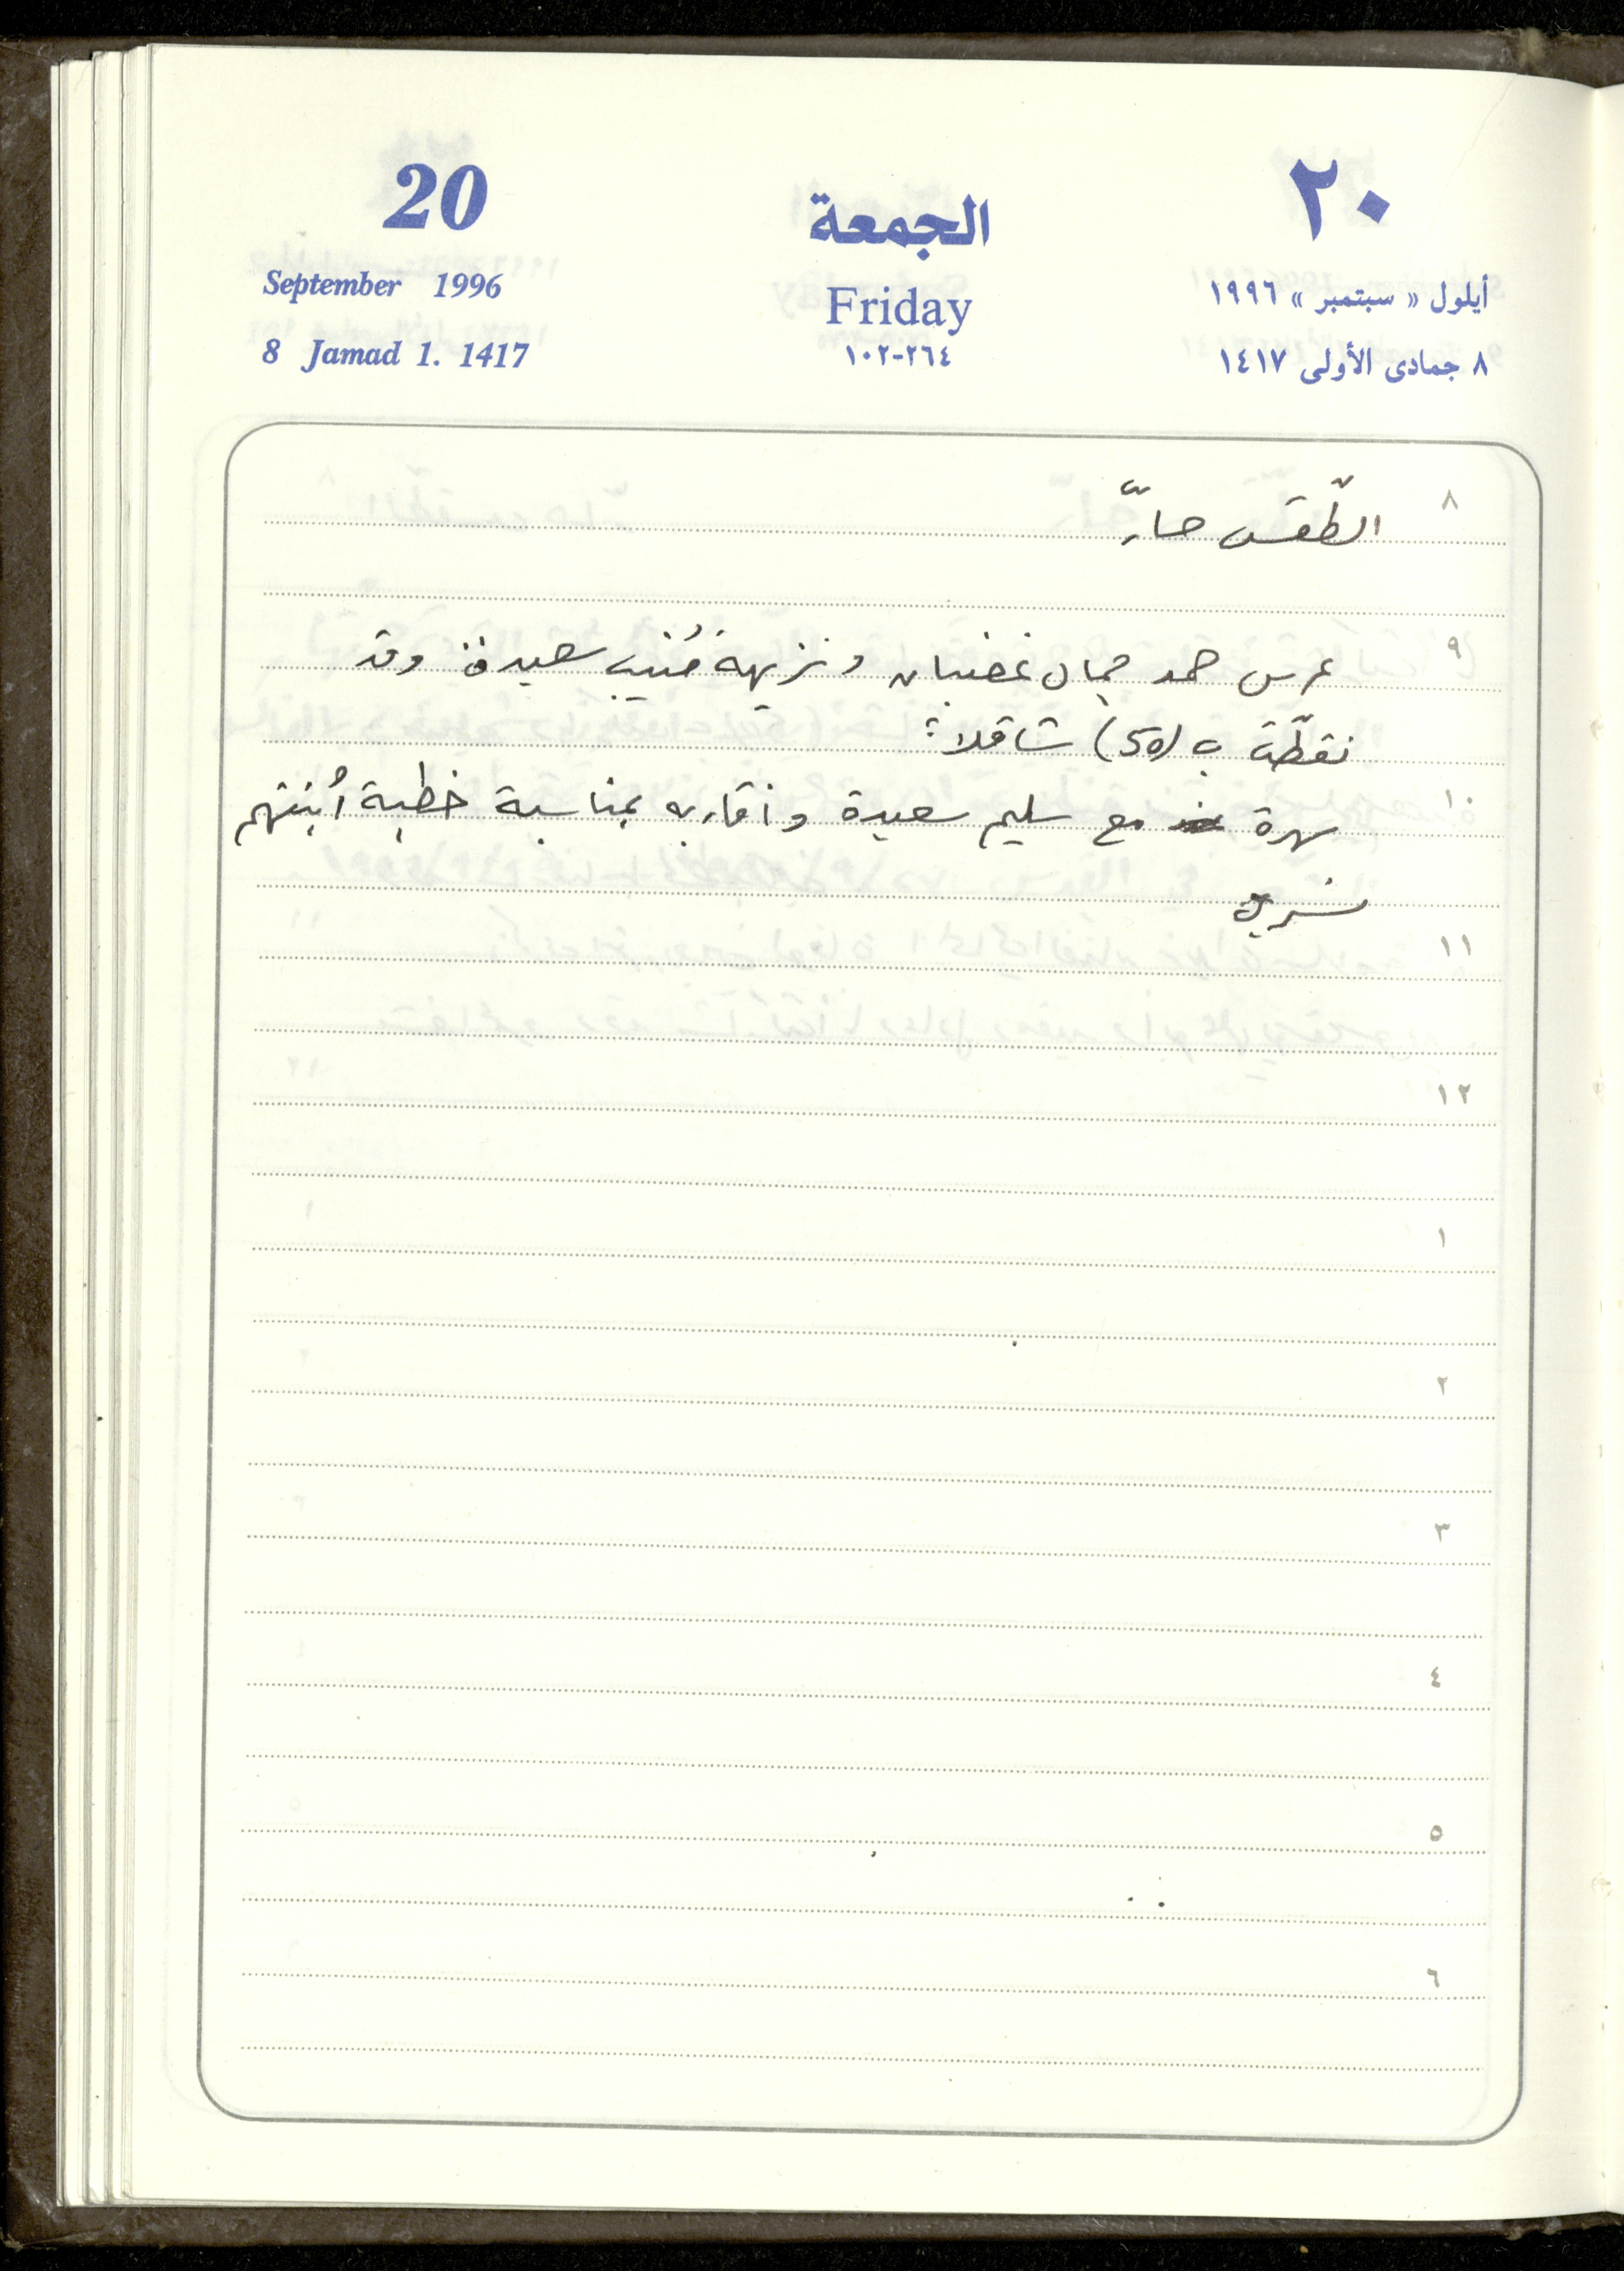 20 الجمعة ٢٠
September 1996 Friday أيلول « سبتمبر » ١٩٩٦
8 Jamad 1. 1417 ٢٦٤-١٠٢ ٨ جمادى الأولى ١٤١٧
٨ الطّقس حارّ
٩ عرس حمد جمال غضبان ونزيهة مُنيب سعيدة وقد
نقطّت ب (50) شاقلاً
١٠ سهرة مع سليم سعيدة وأقاربه بمناسبة خطبة أبنتهم
١١
١٢
١
٢
٣
٤
٥
٦